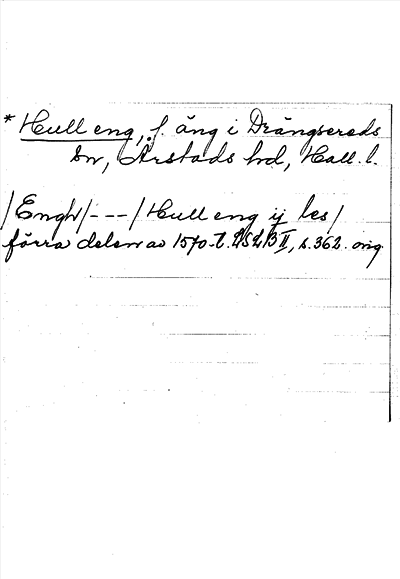 * Hulleng, f. äng i Drängsereds
sn, Årstads hd, Hall. l.
/Engh/---/Hulleng ij les/
förra delen av 1570-t. LSLB II, s. 362. orig.